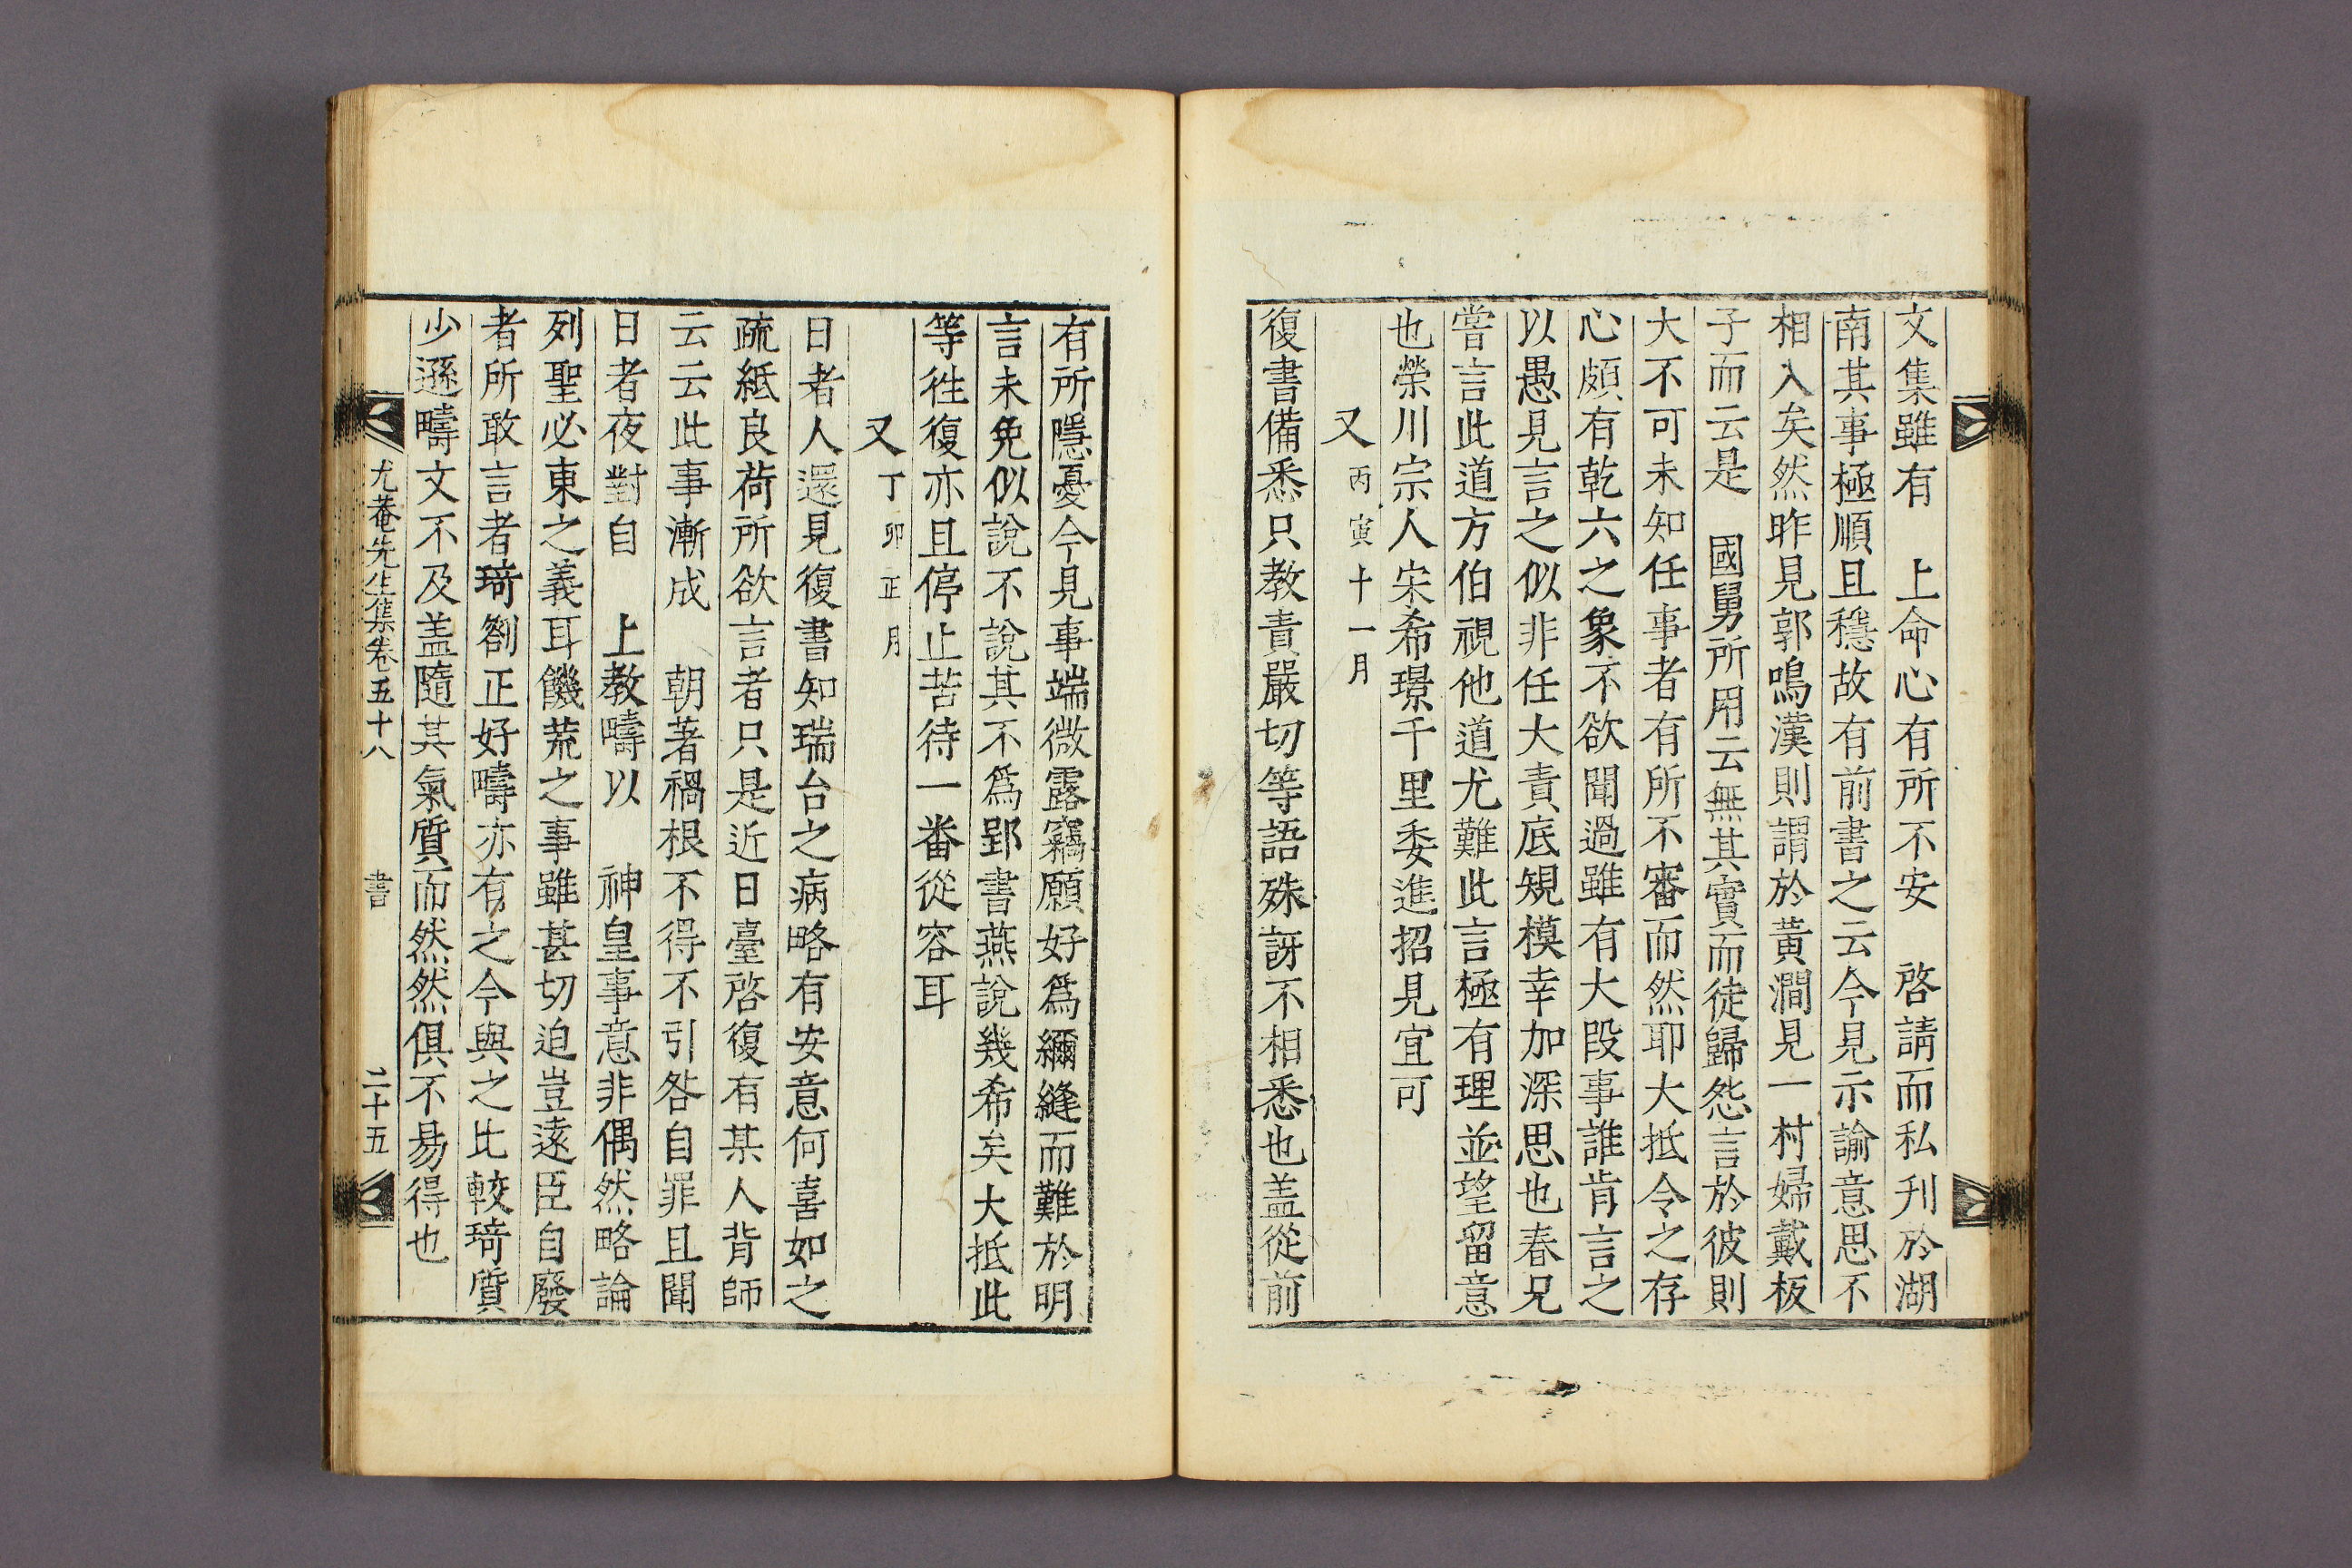 文集雖有 上命心有所不安 啓請而私刋於湖
南其事極順且穩故有前書之云今見示諭意思不
相入矣然昨見郭鳴漢則謂於黃澗見一村婦戴板
子而云是 國舅所用云無其實而徒歸怨言於彼則
大不可未知任事者有所不審而然耶大抵令之存
心頗有乾六之象不欲聞過雖有大段事誰肯言之
以愚見言之似非任大責底規模幸加深思也春兄
嘗言此道方伯視他道尤難此言極有理並望留意
也榮川宗人宋希璟千里委進招見宜可
又 丙寅十一月
復書備悉只教責嚴切等語殊訝不相悉也盖從前
有所隱憂今見事端微露竊願好爲彌縫而難於明
言未免似說不說其不爲郢書燕說幾希矣大抵此
等徃復亦且停止苦待一番從容耳
又 丁卯正月
日者人還見復書知瑞台之病略有安意何喜如之
疏紙良荷所欲言者只是近日臺啓復有某人背師
云云此事漸成 朝著禍根不得不引咎自罪且聞
日者夜對自 上教疇以 神皇事意非偶然略論
列聖必東之義耳饑荒之事雖甚切迫豈遠臣自廢
者所敢言者琦劄正好疇亦有之今與之比較琦質
少遜疇文不及盖隨其氣質而然然俱不易得也
尤菴先生集卷五十八 書 二十五